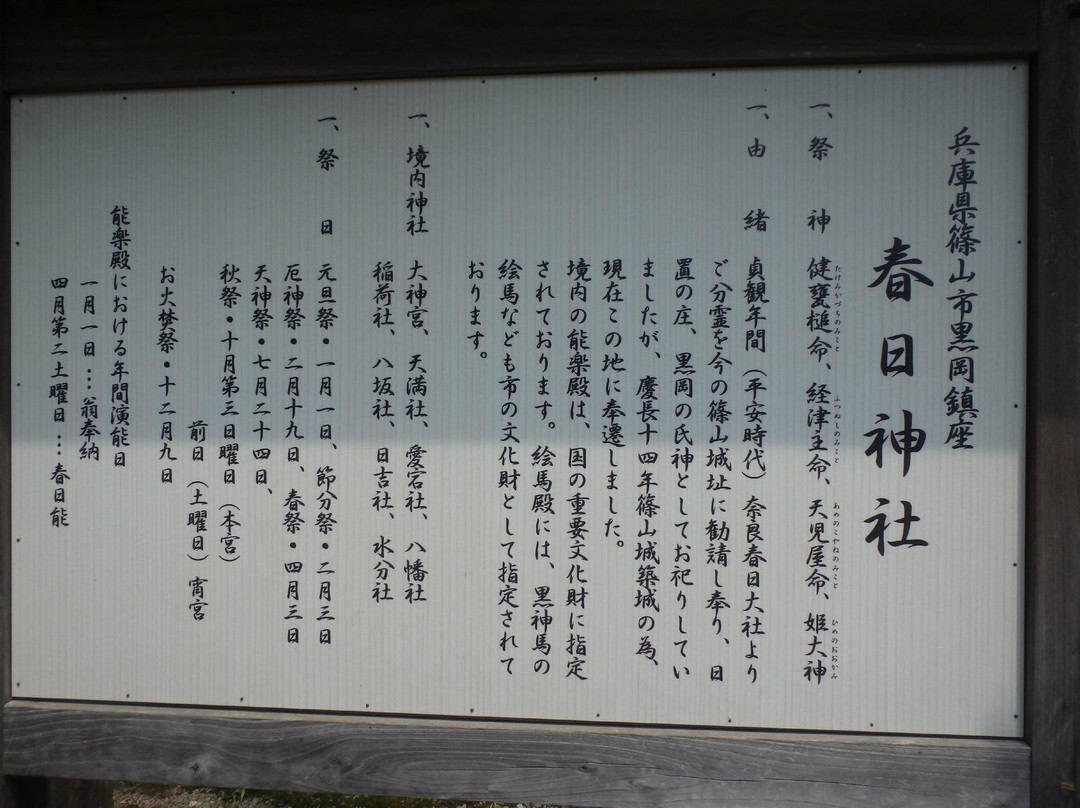 兵庫県篠山市黒岡鎮座
春日神社
一、祭　神　健甕槌命、経津主命、天児屋命、姫大神
たけみかづちのみこと　ふつぬしのみこと　あめのこやねのみこと　ひめのおおかみ
一、由　緒　貞観年間（平安時代）奈良春日大社より
ご分霊を今の篠山城址に勧請し奉り、日
置の庄、黒岡の氏神としてお祀りしてい
ましたが、慶長十四年篠山城築城の為、
現在この地に奉遷しました。
境内の能楽殿は、国の重要文化財に指定
されております。絵馬殿には、黒神馬の
絵馬なども市の文化財として指定されて
おります。
一、境内神社　大神宮、天満社、愛宕社、八幡社
稲荷社、八坂社、日吉社、水分社
一、祭　日　元旦祭・一月一日、節分祭・二月三日
厄神祭・二月十九日、春祭・四月三日
天神祭・七月二十四日、
秋祭・十月第三日曜日（本宮）
前日（土曜日）宵宮
お火焚祭・十二月九日
能楽殿における年間演能日
一月一日…翁奉納
四月第二土曜日…春日能